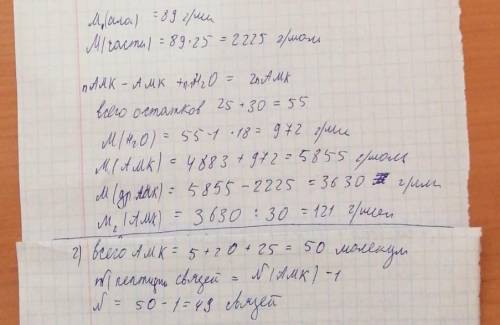 M(ала) = 89 г/мл
M(часты) = 89·25 = 2225 г/моль
nАМК - АМК + nH2O = 2nАМК
всего остатков 25 + 30 = 55
M(H2O) = 55-1 · 18 = 972 г/мл
M(АМК) = 4883 + 972 = 5855 г/моль
M(др АМК) = 5855 - 2225 = 3630 г/мл
M2(АМК) = 3630 : 30 = 121 г/моль
2) всего АМК = 5 + 20 + 25 = 50 молекул
N(пептидн связей = N(АМК) - 1
N = 50 - 1 = 49 связей